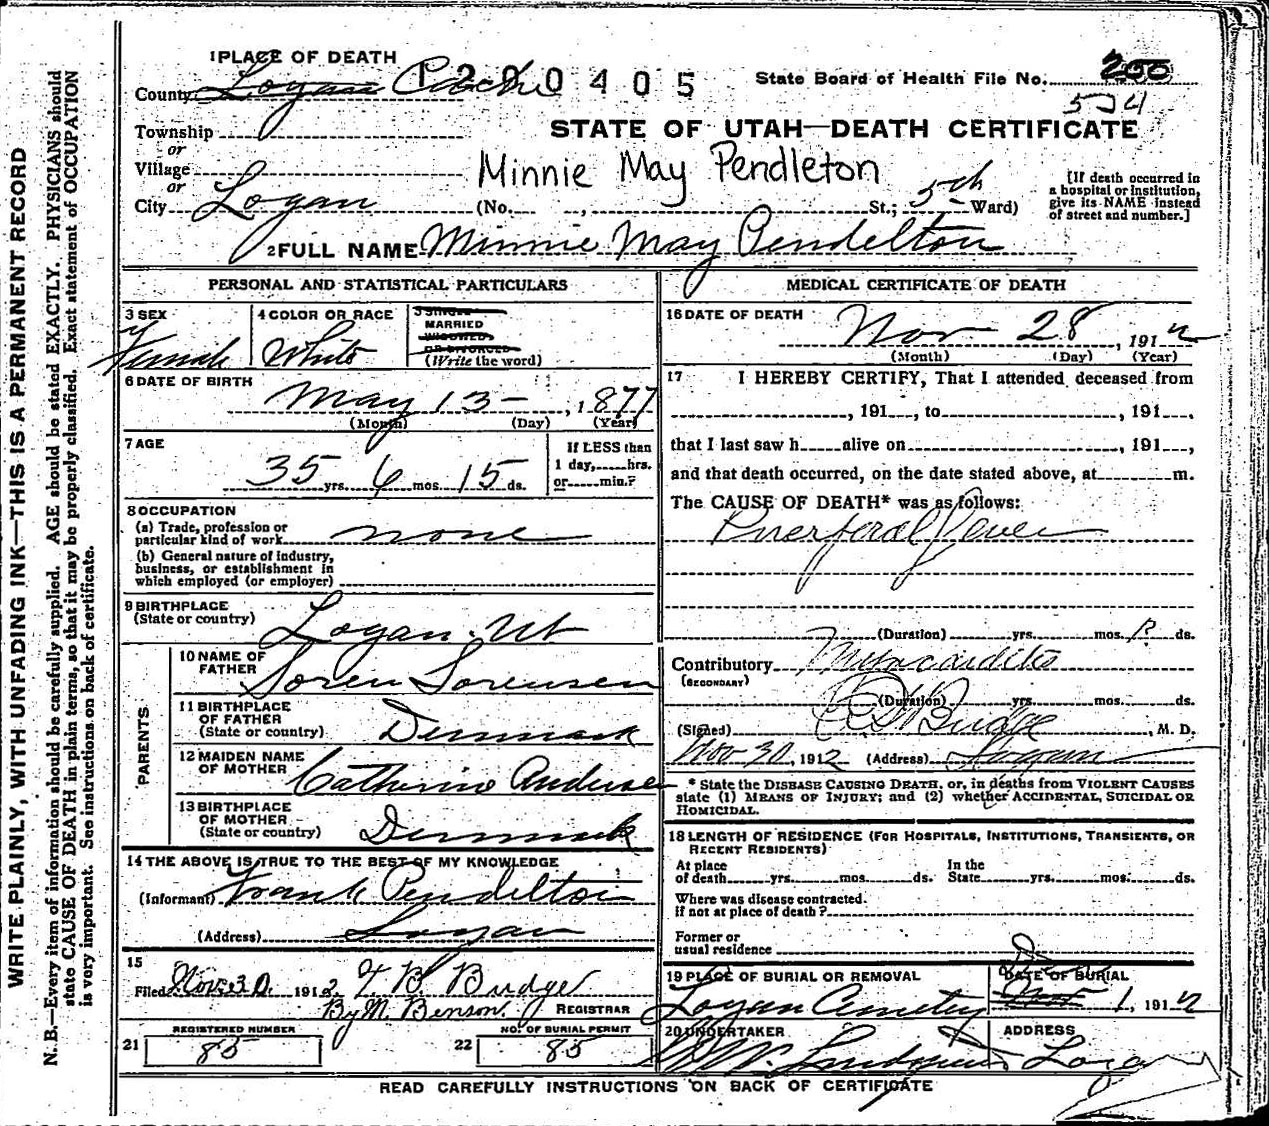 WRITE PLAINLY, WITH UNFADING INK—THIS IS A PERMANENT RECORD
N. B.—Every item of information should be carefully supplied. AGE should be stated EXACTLY. PHYSICIANS should
state CAUSE OF DEATH in plain terms, so that it may be properly classified. Exact statement of OCCUPATION
is very important. See instructions on back of certificate.
1 PLACE OF DEATH
County Logan Cache
1200405
State Board of Health File No. 200
534
Township
or
STATE OF UTAH—DEATH CERTIFICATE
Village
or
Minnie May Pendleton
City Logan (No. , St.; 5th Ward)
[If death occurred in
a hospital or institution,
give its NAME instead
of street and number.]
2 FULL NAME Minnie May Pendelton
PERSONAL AND STATISTICAL PARTICULARS
3 SEX
Female
4 COLOR OR RACE
White
5 SINGLE
MARRIED
WIDOWED
OR DIVORCED
(Write the word)
6 DATE OF BIRTH
May 13- , 1877
(Month) (Day) (Year)
7 AGE
35 yrs. 6 mos. 15 ds.
If LESS than
1 day, hrs.
or min.?
8 OCCUPATION
(a) Trade, profession or
particular kind of work none
(b) General nature of industry,
business, or establishment in
which employed (or employer)
9 BIRTHPLACE
(State or country) Logan. Ut
PARENTS
10 NAME OF
FATHER Soren Sorensen
11 BIRTHPLACE
OF FATHER
(State or country) Denmark
12 MAIDEN NAME
OF MOTHER Catherine Andersen
13 BIRTHPLACE
OF MOTHER
(State or country) Denmark
14 THE ABOVE IS TRUE TO THE BEST OF MY KNOWLEDGE
(Informant) Frank Pendelton
(Address) Logan
15
Filed Nov. 30, 1912. T B Budge
By M. Benson. REGISTRAR
REGISTERED NUMBER
21 85
NO. OF BURIAL PERMIT
22 85
MEDICAL CERTIFICATE OF DEATH
16 DATE OF DEATH
Nov 28 , 1912
(Month) (Day) (Year)
17 I HEREBY CERTIFY, That I attended deceased from
, 191 , to , 191 ,
that I last saw h alive on , 191 ,
and that death occurred, on the date stated above, at m.
The CAUSE OF DEATH* was as follows:
Puerperal Fever
(Duration) yrs. mos. ds.
Contributory Myocarditis
(SECONDARY)
(Duration) yrs. mos. ds.
(Signed) Budge, M. D.
Nov 30, 1912 (Address) Logan
* State the DISEASE CAUSING DEATH, or, in deaths from VIOLENT CAUSES
state (1) MEANS OF INJURY; and (2) whether ACCIDENTAL, SUICIDAL OR
HOMICIDAL.
18 LENGTH OF RESIDENCE (FOR HOSPITALS, INSTITUTIONS, TRANSIENTS, OR
RECENT RESIDENTS)
At place
of death yrs. mos. ds.
In the
State yrs. mos. ds.
Where was disease contracted.
if not at place of death?
Former or
usual residence
19 PLACE OF BURIAL OR REMOVAL
Logan Cemetery
DATE OF BURIAL
1, 1912
20 UNDERTAKER
ADDRESS
READ CAREFULLY INSTRUCTIONS ON BACK OF CERTIFICATE